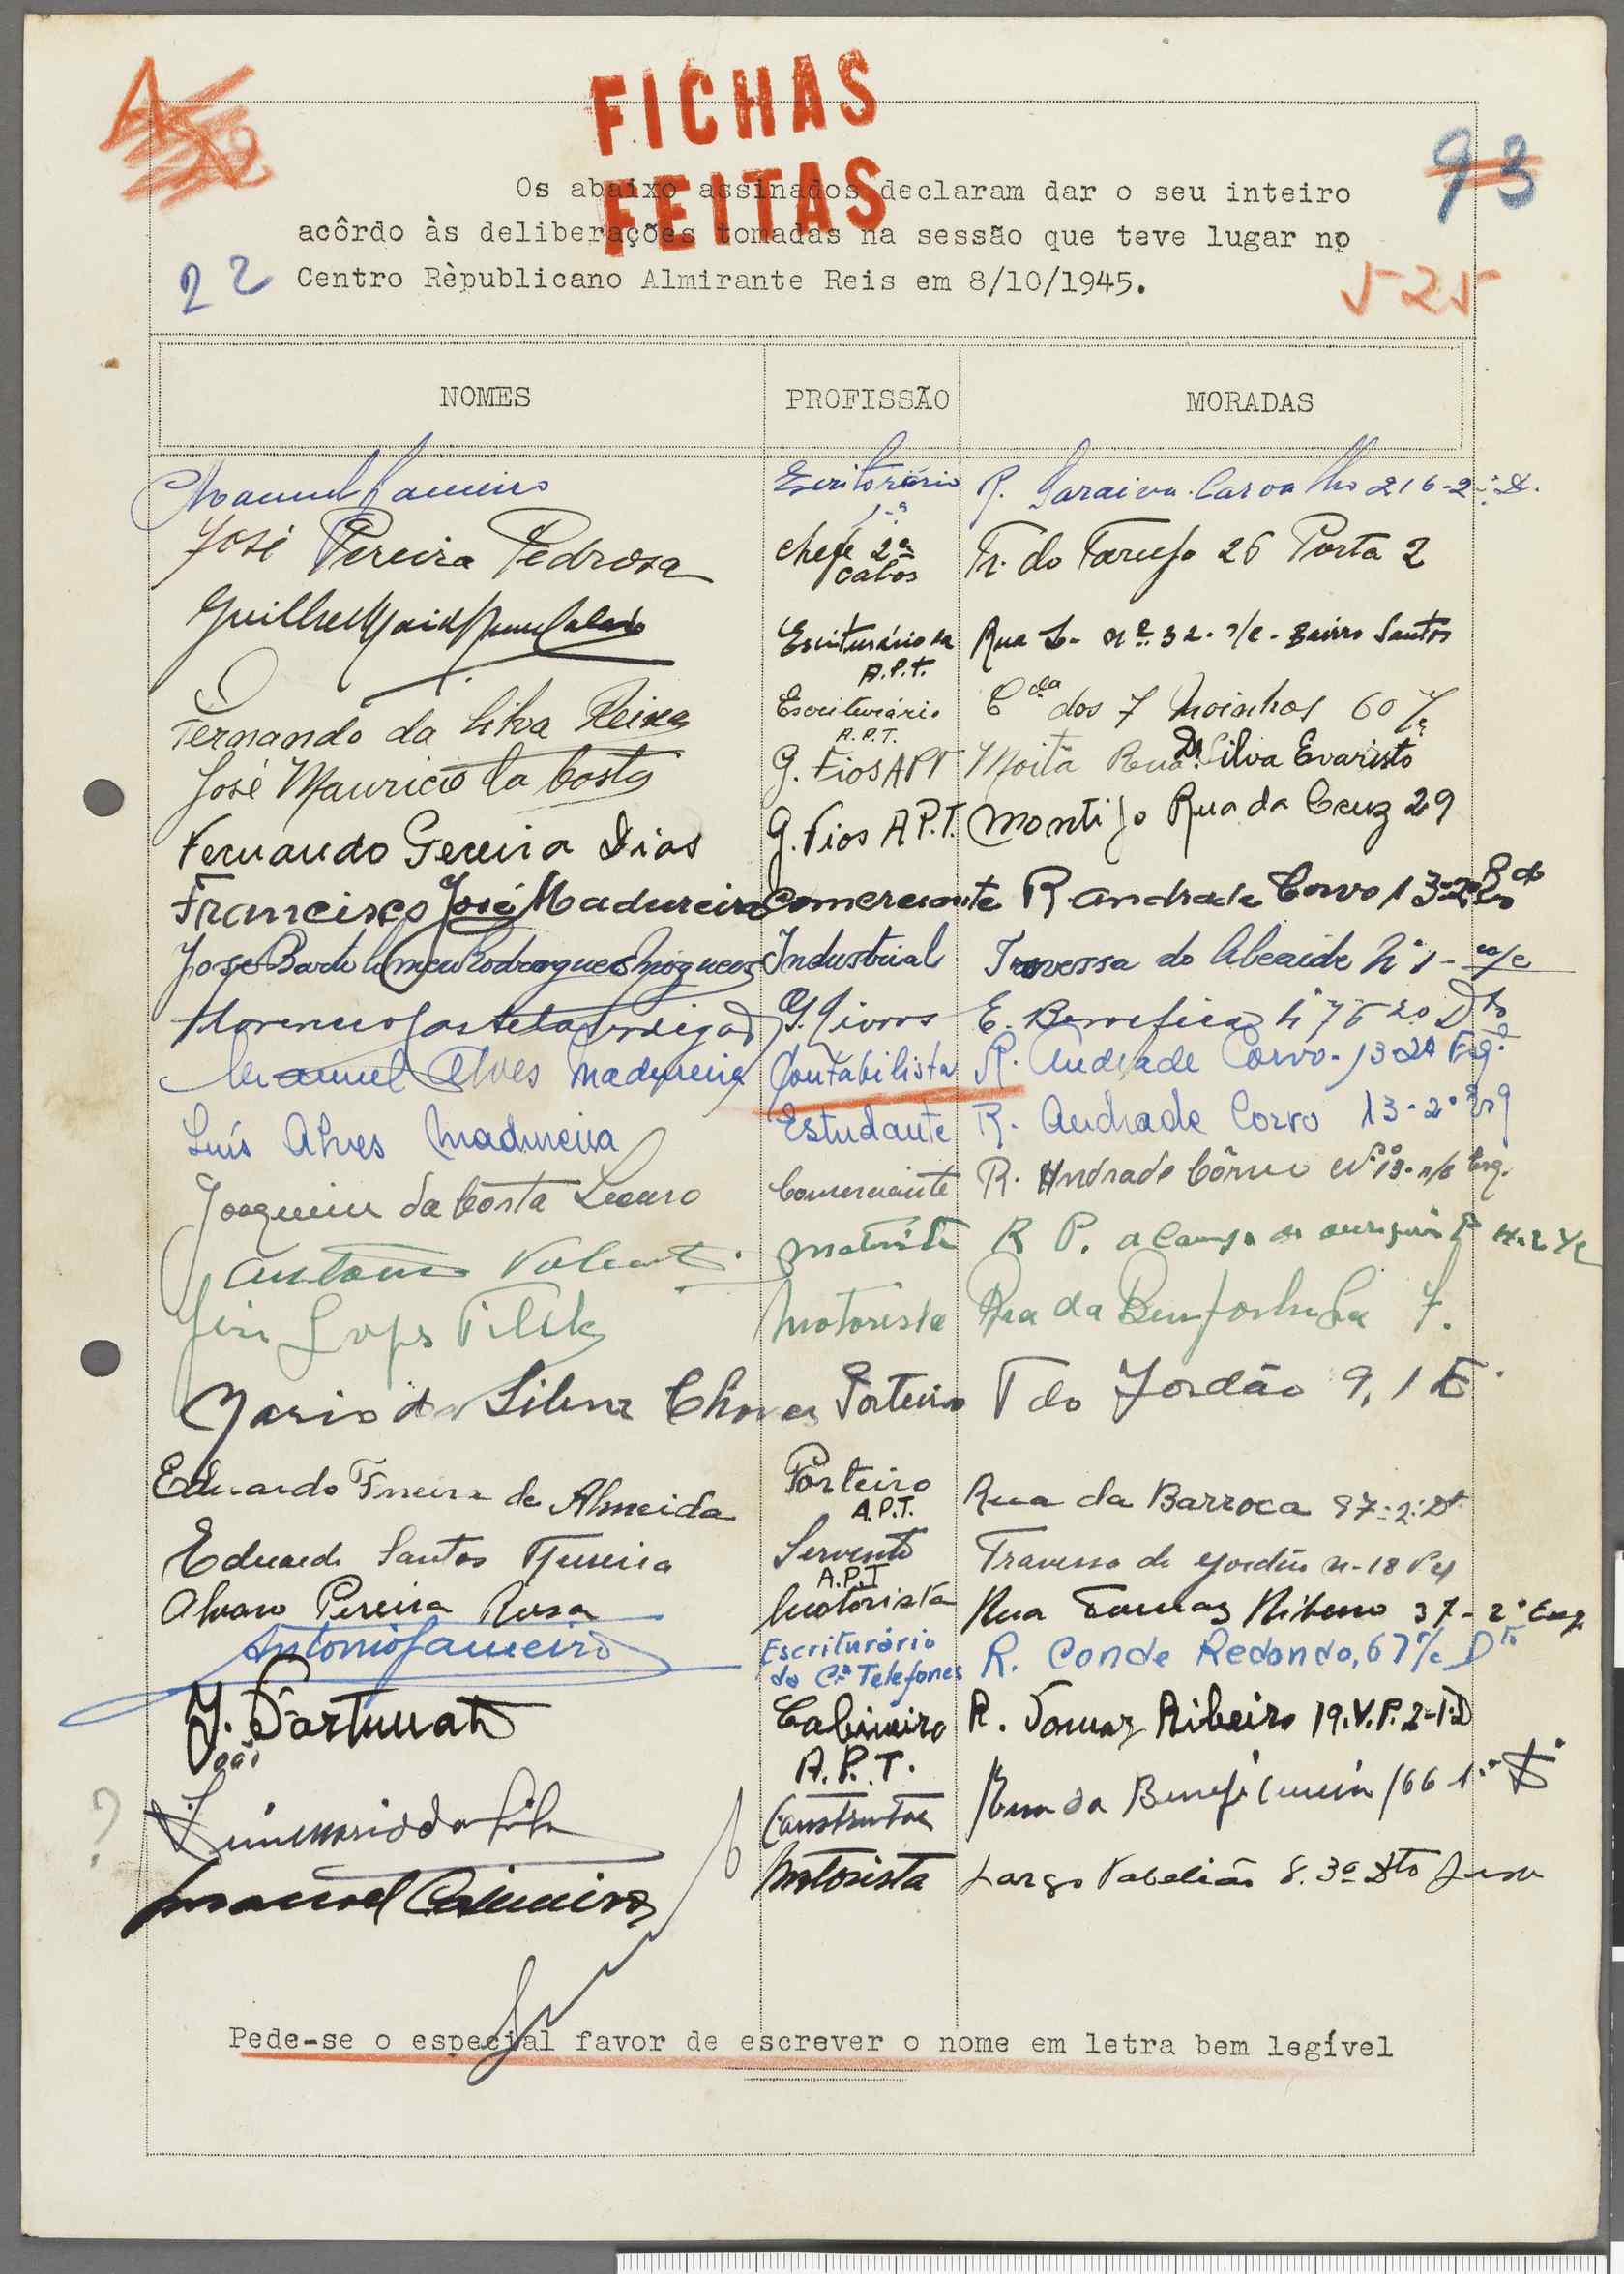 FICHAS
FEITAS
93
Os abaixo assinados declaram dar o seu inteiro
acôrdo às deliberações tomadas na sessão que teve lugar no
Centro Rèpublicano Almirante Reis em 8/10/1945.
22
525
NOMES PROFISSÃO MORADAS
Manuel Janeiro Escritorário 1-ª R. Saraiva Carvalho 216-2º D.
José Pereira Pedrosa chefe 2ª cabos Tr. do Tarujo 26 Porta 2
Escriturário da A.P.T. Rua L- nº 32- r/c - Bairro Santos
Fernando da Silva Escriturário A.P.T. Cda dos 7 Moinhos 60
José Mauricio da Costa G. Fios APT Moita Rua Dr. Silva Evaristo
Fernando Pereira Dias G. Fios A P.T. Montijo Rua da Cruz 29
Francisco José Madureira Comerciante R Andrade Corvo 13-2º
José Bartolomeu Rodrigues Industrial Travessa do Alcaide Nº 1 - r/c
G. Livros E. Benefica Nº 76 2º Dto
Manuel Alves Madureira Contabilista R. Andrade Corvo-13-2º Esqº
Luís Alves Madureira Estudante R. Andrade Corvo 13-2º Esq
Joaquim da Costa Comerciante R. Andrade Côrvo Nº 13-r/c Esq.
Antonio R P. a Campo de
Lopes Motorista Rua da 7.
Mario da Silva Chaves Porteiro T do Jordão 9, 1 E.
Eduardo Ferreira de Almeida Porteiro A.P.T. Rua da Barroca 97-2º Dt
Eduardo Santos Servente A.P.T Travessa do Jordão n-18
Alvaro Pereira Rosa Motorista Rua Tomaz Ribeiro 37-2º Esq
Antonio Janeiro Escriturário da Cª Telefones R. Conde Redondo, 67 r/c Dto
J. Fortunato Cabineiro A.P.T. R. Tomaz Ribeiro 19.V.P.2-1ºD
João
? Construtor Rua da Beneficencia 166 1º D
Manuel Casimiro Motorista Largo Tabelião 8. 3º Dto
Pede-se o especial favor de escrever o nome em letra bem legível